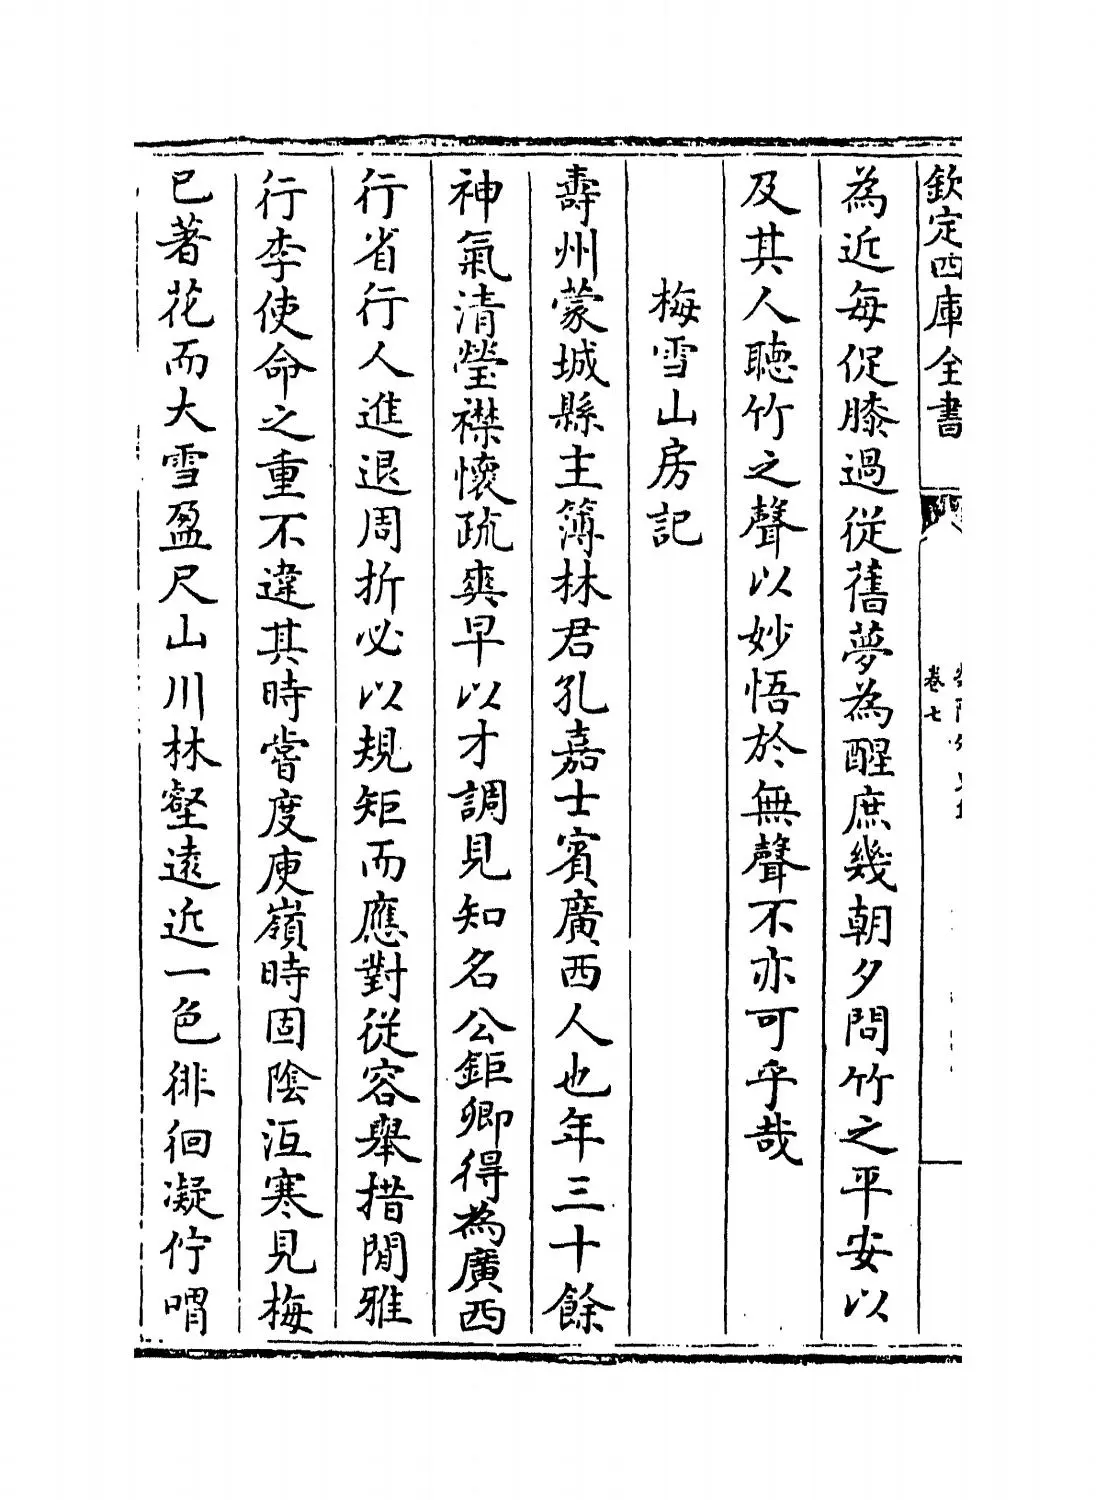 欽定四庫全書
卷七
為近每促膝過從舊夢為醒庶幾朝夕問竹之平安以
及其人聽竹之聲以妙悟於無聲不亦可乎哉
梅雪山房記
壽州蒙城縣主簿林君孔嘉士賓廣西人也年三十餘
神氣清瑩襟懷疏爽早以才調見知名公鉅卿得為廣西
行省行人進退周折必以規矩而應對從容舉措閒雅
行李使命之重不違其時嘗度庾嶺時固陰沍寒見梅
已著花而大雪盈尺山川林壑遠近一色徘徊凝佇喟